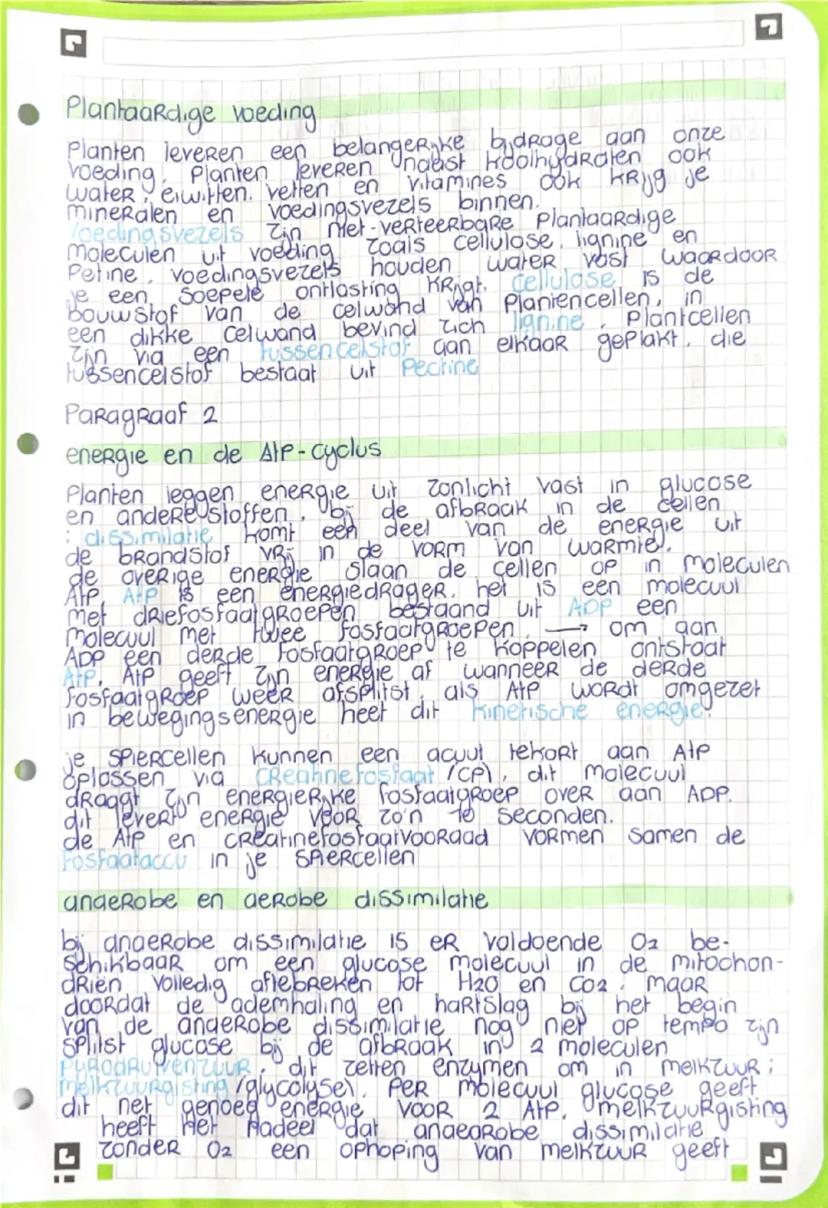 Plantaardige voeding
Planten leveren een belangerijke bijdrage aan onze
voeding. Planten leveren naast koolhydraten ook
water, eiwitten, vetten en vitamines ook krijg je
mineralen en voedingsvezels binnen.
Voedingsvezels zijn niet-verteerbare plantaardige
moleculen uit voeding zoals cellulose, lignine en
Petine. voedingsvezels houden water vast waardoor
je een soepele ontlasting krijgt. cellulose is de
bouwstof van de celwand van plantencellen, in
een dikke celwand bevind zich lignine. Plantcellen
zijn via een tussencelstof aan elkaar geplakt. die
tussencelstof bestaat uit Pectine
Paragraaf 2
energie en de ATP-cyclus
Planten leggen energie uit zonlicht vast in glucose
en andere stoffen. bij de afbraak in de cellen
: dissimilatie komt een deel van de energie uit
de brandstof vrij in de vorm van warmte.
de overige energie slaan de cellen op in moleculen
ATP. ATP is een energiedrager. het is een molecuul
met driefosfaatgroepen bestaand uit ADP een
molecuul met twee fosfaatgroepen. → om aan
ADP een derde fosfaatgroep te koppelen ontstaat
ATP. ATP geeft zijn energie af wanneer de derde
fosfaatgroep weer afsplitst. als ATP wordt omgezet
in bewegingsenergie heet dit kinetische energie.
je spiercellen kunnen een acuut tekort aan ATP
oplossen via creatinefosfaat (CP), dit molecuul
draagt zijn energierijke fosfaatgroep over aan ADP.
dit levert energie voor zo'n 10 seconden.
de ATP en creatinefosfaatvooraad vormen samen de
fosfaataccu in je spiercellen
anaerobe en aerobe dissimilatie
bij anaerobe dissimilatie is er voldoende O2 be-
schikbaar om een glucose molecuul in de mitochon-
driën volledig aftebreken tot H2O en CO2. maar
doordat de ademhaling en hartslag bij het begin
van de anaerobe dissimilatie nog niet op tempo zijn
splitst glucose bij de afbraak in 2 moleculen
Pyrodruivenzuur. dit zetten enzymen om in melkzuur:
melkzuurgisting (glycolyse). Per molecuul glucose geeft
dit net genoeg energie voor 2 ATP. melkzuurgisting
heeft het nadeel dat anaeorobe dissimilatie
zonder O2 een ophoping van melkzuur geeft